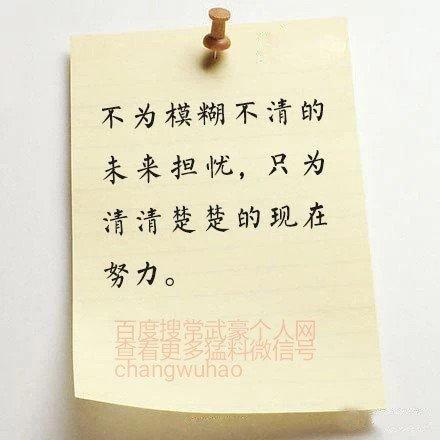 不为模糊不清的
未来担忧，只为
清清楚楚的现在
努力。
百度搜常武豪个人网
查看更多猛料微信号
changwuhao